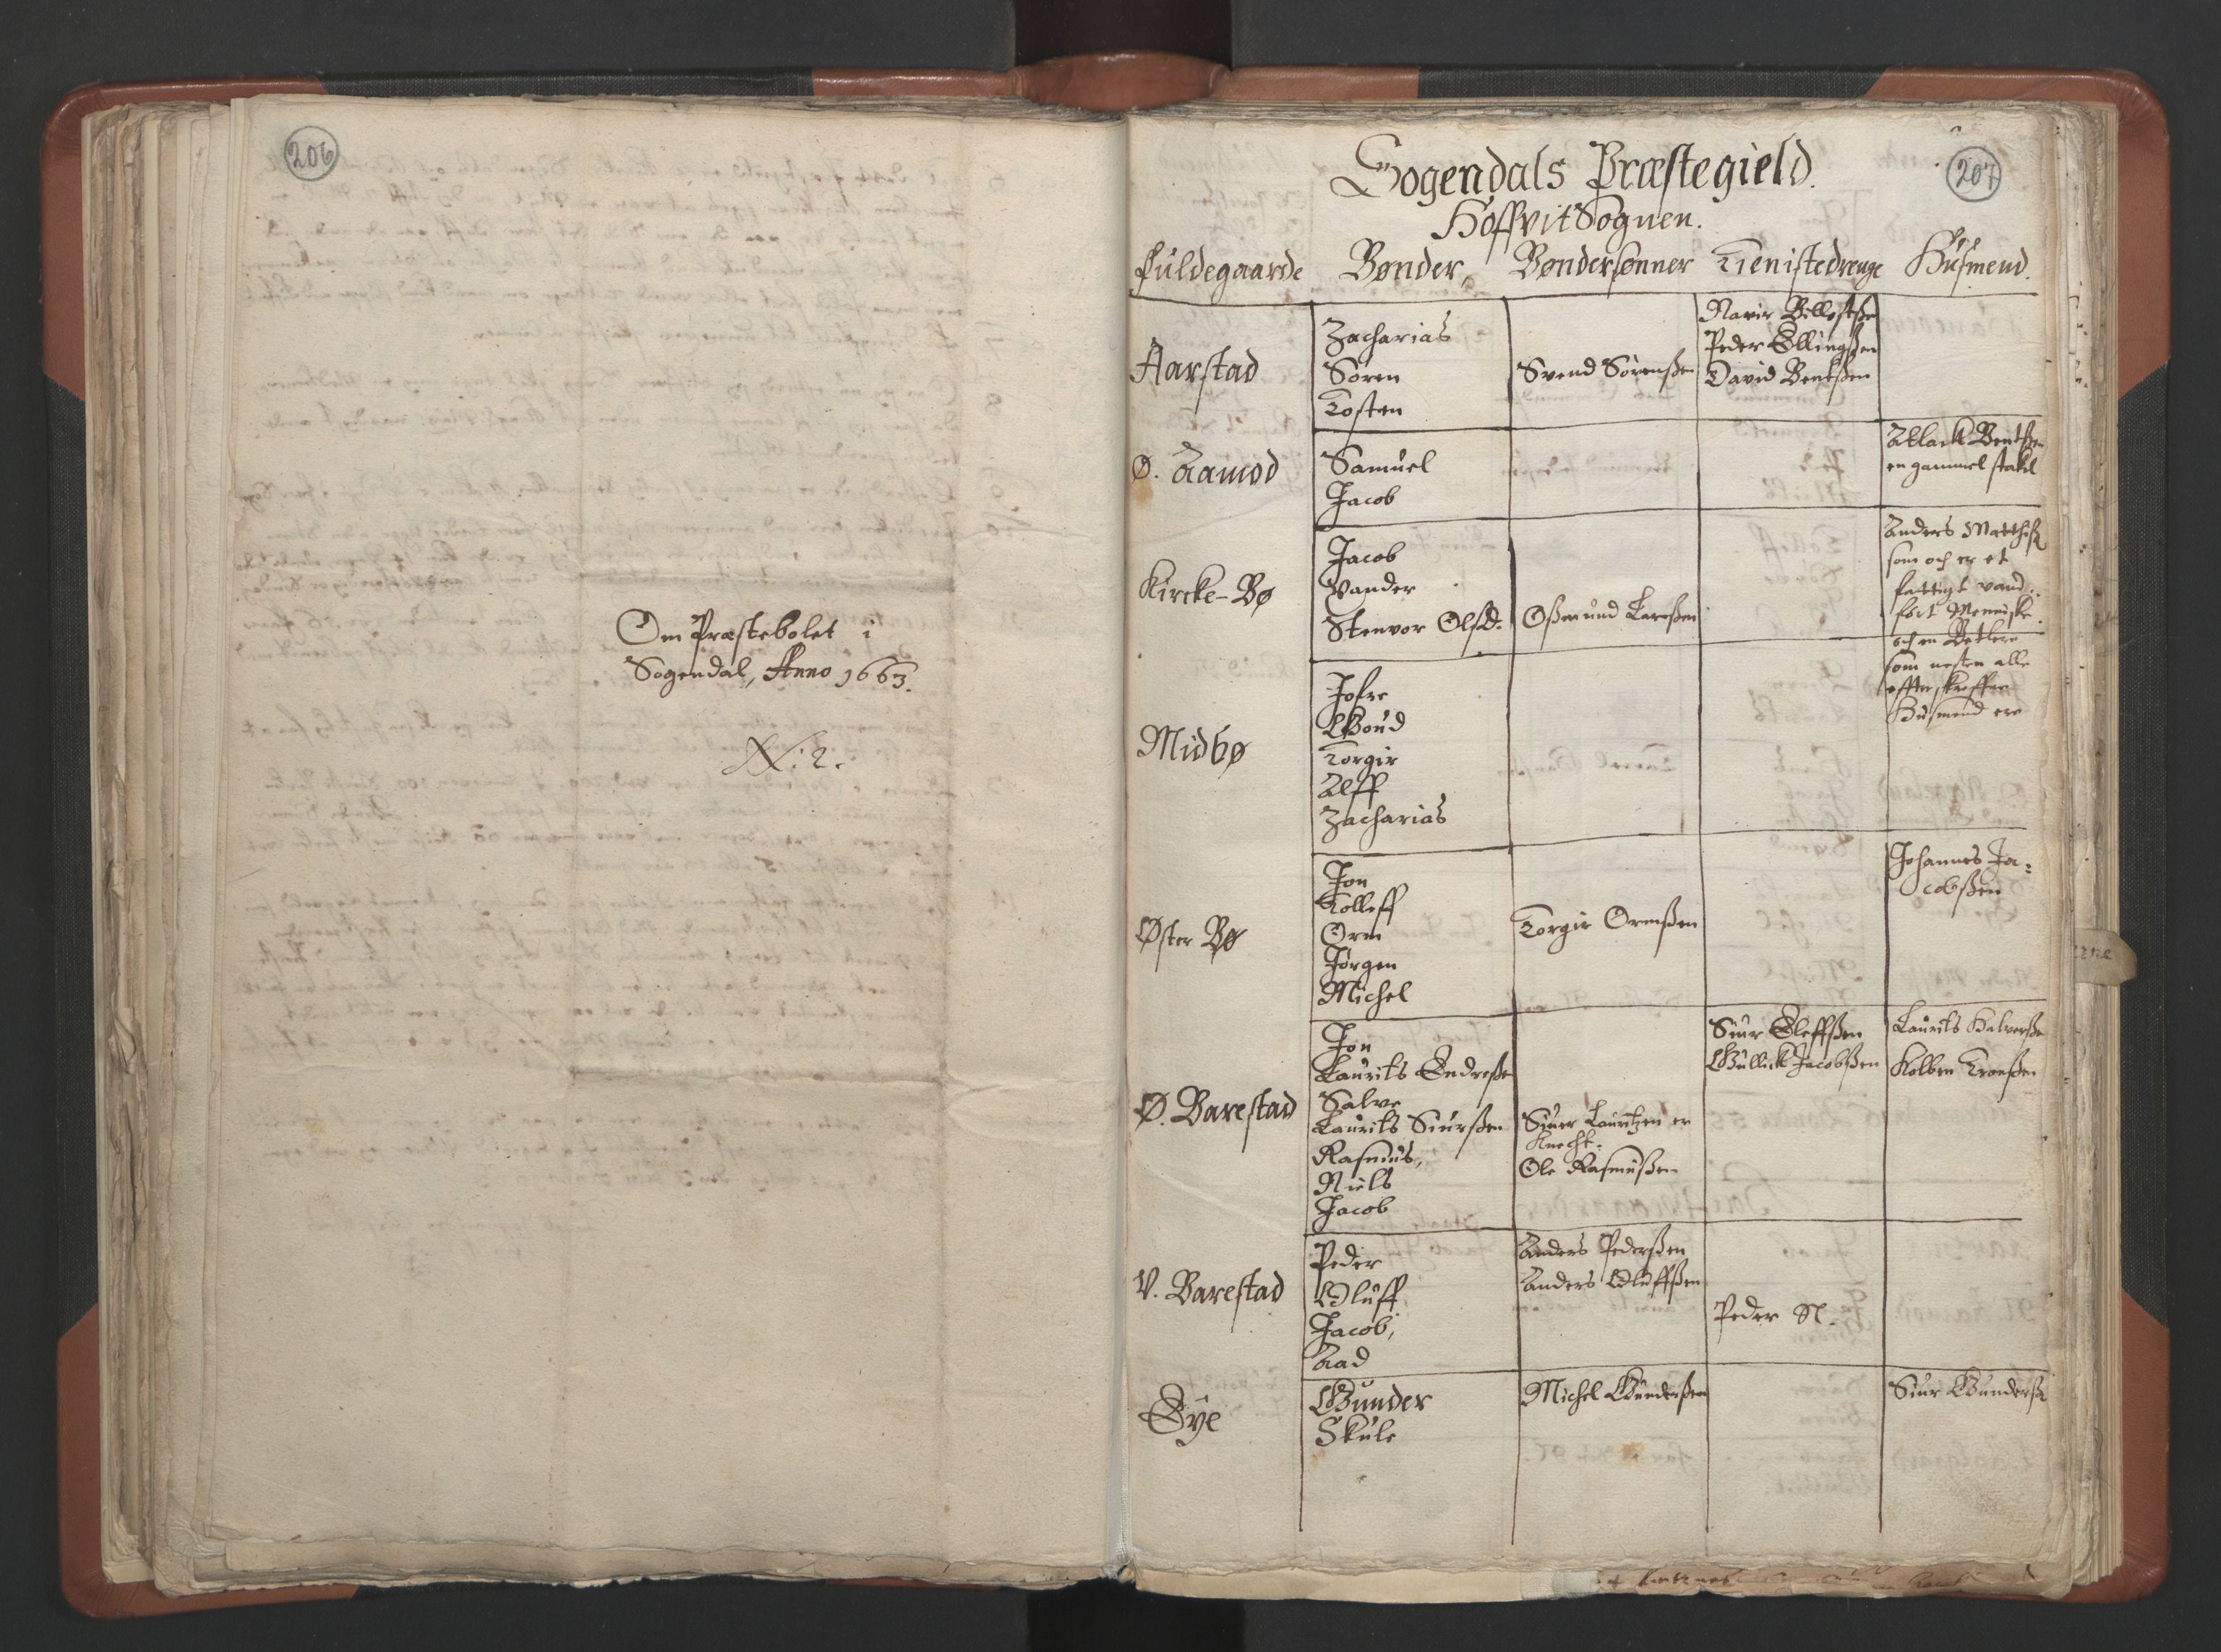 206
Om Præstebolet i
Sogendal, Anno 1663.
N: 2.
207
Sogendals Præstegield.
Hoffvit Sognen.
Fuldegaarde Bønder, Bøndersønner Tienistedrenge Husmend.
Aarstad
Zacharias
Søren
Tosten
Svend Sørenßen
Peder Ellingßen
David Bentßen
Ø. Aamod
Samuel
Jacob
Atlack Bentßen
en gammel stakl
Kircke-Bø
Jacob
Vander
Stenvor Olsd:
Oßmund Larsßen
Anders Matthiß
som och er et
fattigt vand-
ført Menniske
och en Betlere
som nesten alle
effterskreffne
Husmend ere
Midbø
Jofre
Goud
Torgir
Alff
Zacharias
Øster Bø
Jon
Tolleff
Orm
Jørgen
Michel
Torgir Ormßen
Johannes Ja-
cobßen
Ø. Barestad
Jon
Laurits Endreßen
Salve
Laurits Siurßen
Rasmus,
Niels
Jacob
Siuer Lauritzen er
Knecht.
Ole Rasmusßen
Siur Eleffßen
Gullick Jacobßen
Laurits Halverßen
Kolben Troeßen
V. Barestad
Peder
Oluff
Jacob,
Aad
Anders Pederßen
Anders Oluffßen
Peder N.
Eye
Gunder
Skule
Michel Gunderßen
Siur Gunderß